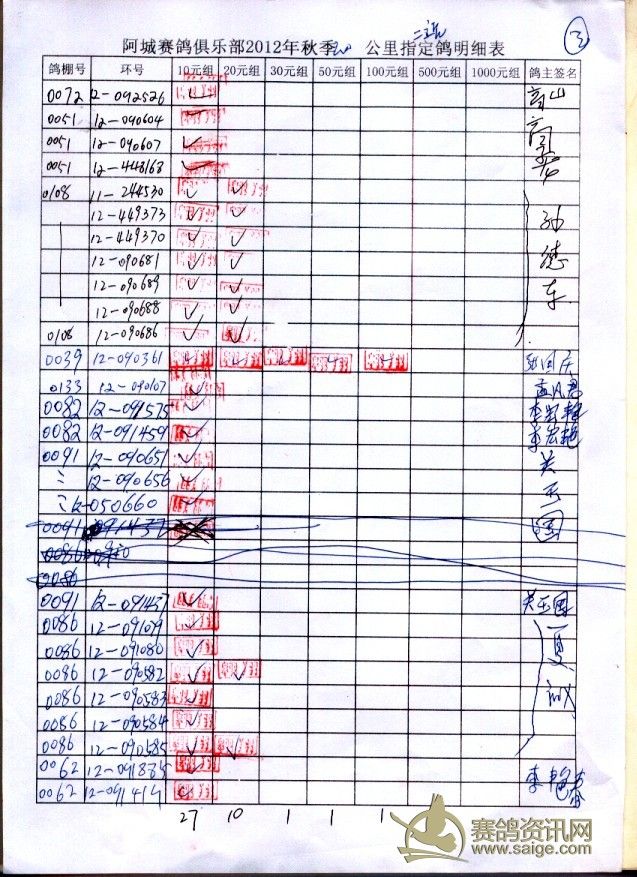 阿城赛鸽俱乐部2012年秋季 公里指定鸽明细表
③
鸽棚号 环号 10元组 20元组 30元组 50元组 100元组 500元组 1000元组 鸽主签名
0072 12-092526 ✓ 高山
0051 12-090604 ✓
0051 12-090607 ✓
0051 12-448168 ✓
0108 11-244530 ✓ ✓
12-449373 ✓ ✓ 孙
12-449370 ✓ ✓
12-090681 ✓ ✓ 德
12-090689 ✓ ✓
12-090688 ✓ ✓ 车
0108 12-090686 ✓ ✓
0039 12-090361
0133 12-090107 ✓
0082 12-091575 ✓
0082 12-091459 ✓ 李宏艳
0091 12-090651 ✓ 关
12-090656 ✓ 玉
12-050660 ✓ 国
0091 091437
0086
0086
0091 12-091437 ✓ 关玉国
0086 12-091079 ✓ 夏
0086 12-091080 ✓
0086 12-090582 ✓ ✓
0086 12-090583 ✓
0086 12-090584 ✓
0086 12-090585 ✓ ✓
0062 12-091885 ✓ 李艳春
0062 12-091414 ✓
27 10 1 1 1
赛鸽资讯网
www.saige.com